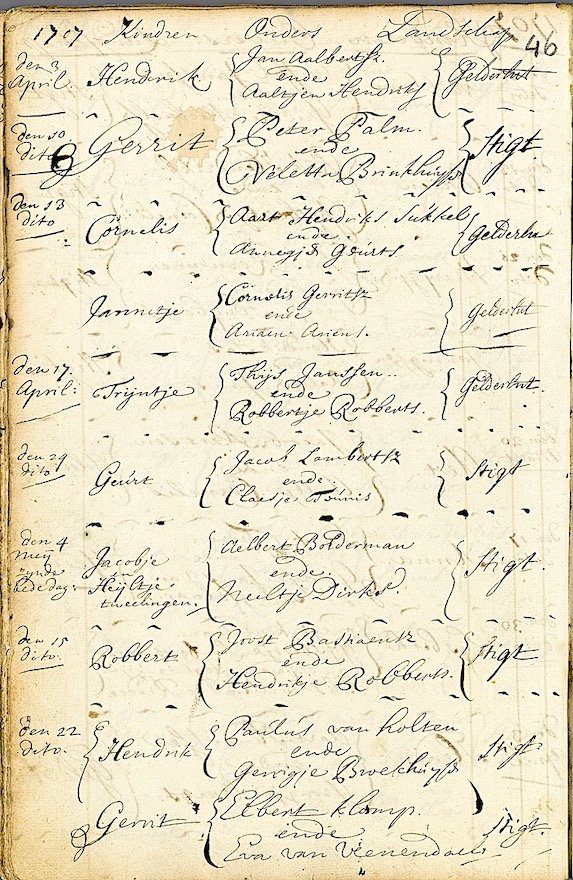 1707 Kindren Ouders Landschap
46
den 3 April. Hendrik Jan Aalbertsz.
ende
Aaltjen Hendriks Gelderlnt
den 10 dito Gerrit Peter Palm.
ende
Veletta Brinkhuyse Stigt
den 13 dito Cornelis Aart Hendriks Sukkel
ende
Annegje Geurts Gelderln
Jannetje Cornelis Gerritsz
ende
Ariaen Ariens. Gelderlnt
den 17. April: Trijntje Thijs Janssen..
ende
Robbertje Robberts. Gelderlnt.
den 29 dito Geurt Jacob Lambertsz
ende.
Claesje Teunis Stigt
den 4 Meij zynde bededag: Jacobje
en Heyltje
tweelingen. Aelbert Bolderman
ende.
Neeltje Dirks. Stigt.
den 15 dito. Robbert Joost Bastiaensz
ende
Hendrikje Robberts. Stigt
den 22 dito. Hendrik Paulus van Holten
ende
Gerrigje Broekhuyse Stigt
Gerrit Elbert Klomp.
ende
Eva van Veenendael Stigt.